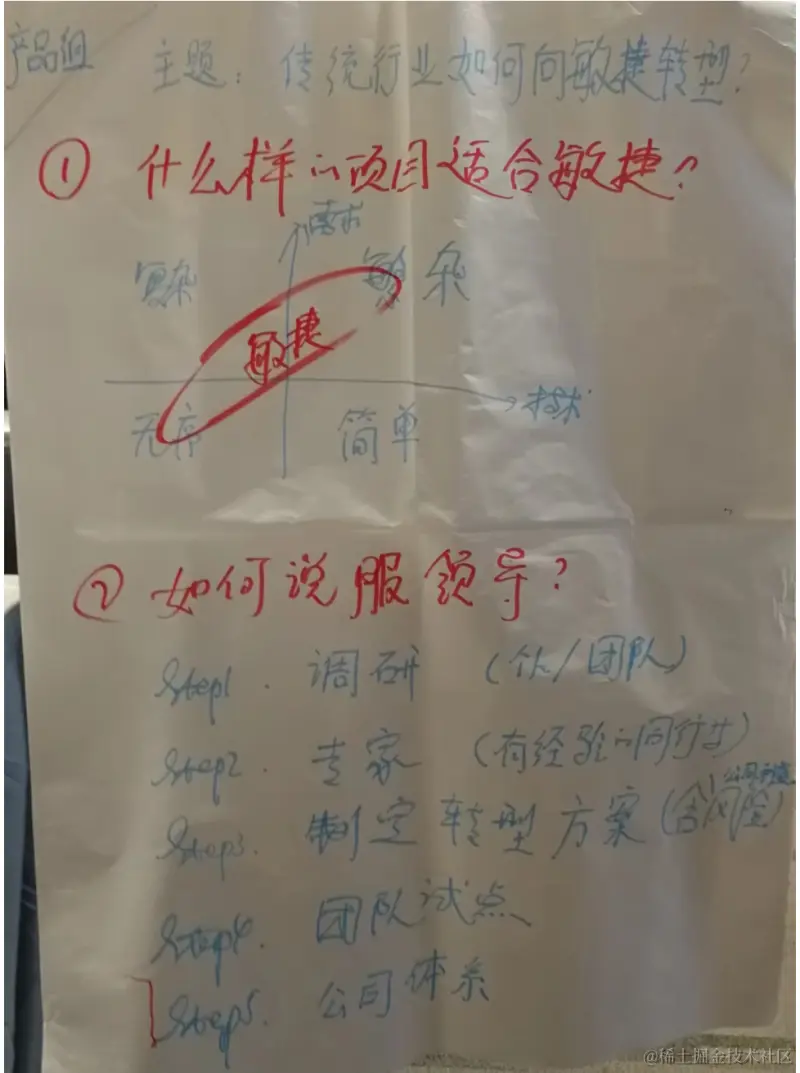 产品组
主题：传统行业如何向敏捷转型？
① 什么样的项目适合敏捷？
需求
复杂 繁杂
敏捷
技术
无序 简单
② 如何说服领导？
Step1. 调研 （个人/团队）
Step2. 专家 （有经验的同行者）
Step3. 制定转型方案（含风险）
Step4. 团队试点
Step5. 公司体系
@稀土掘金技术社区